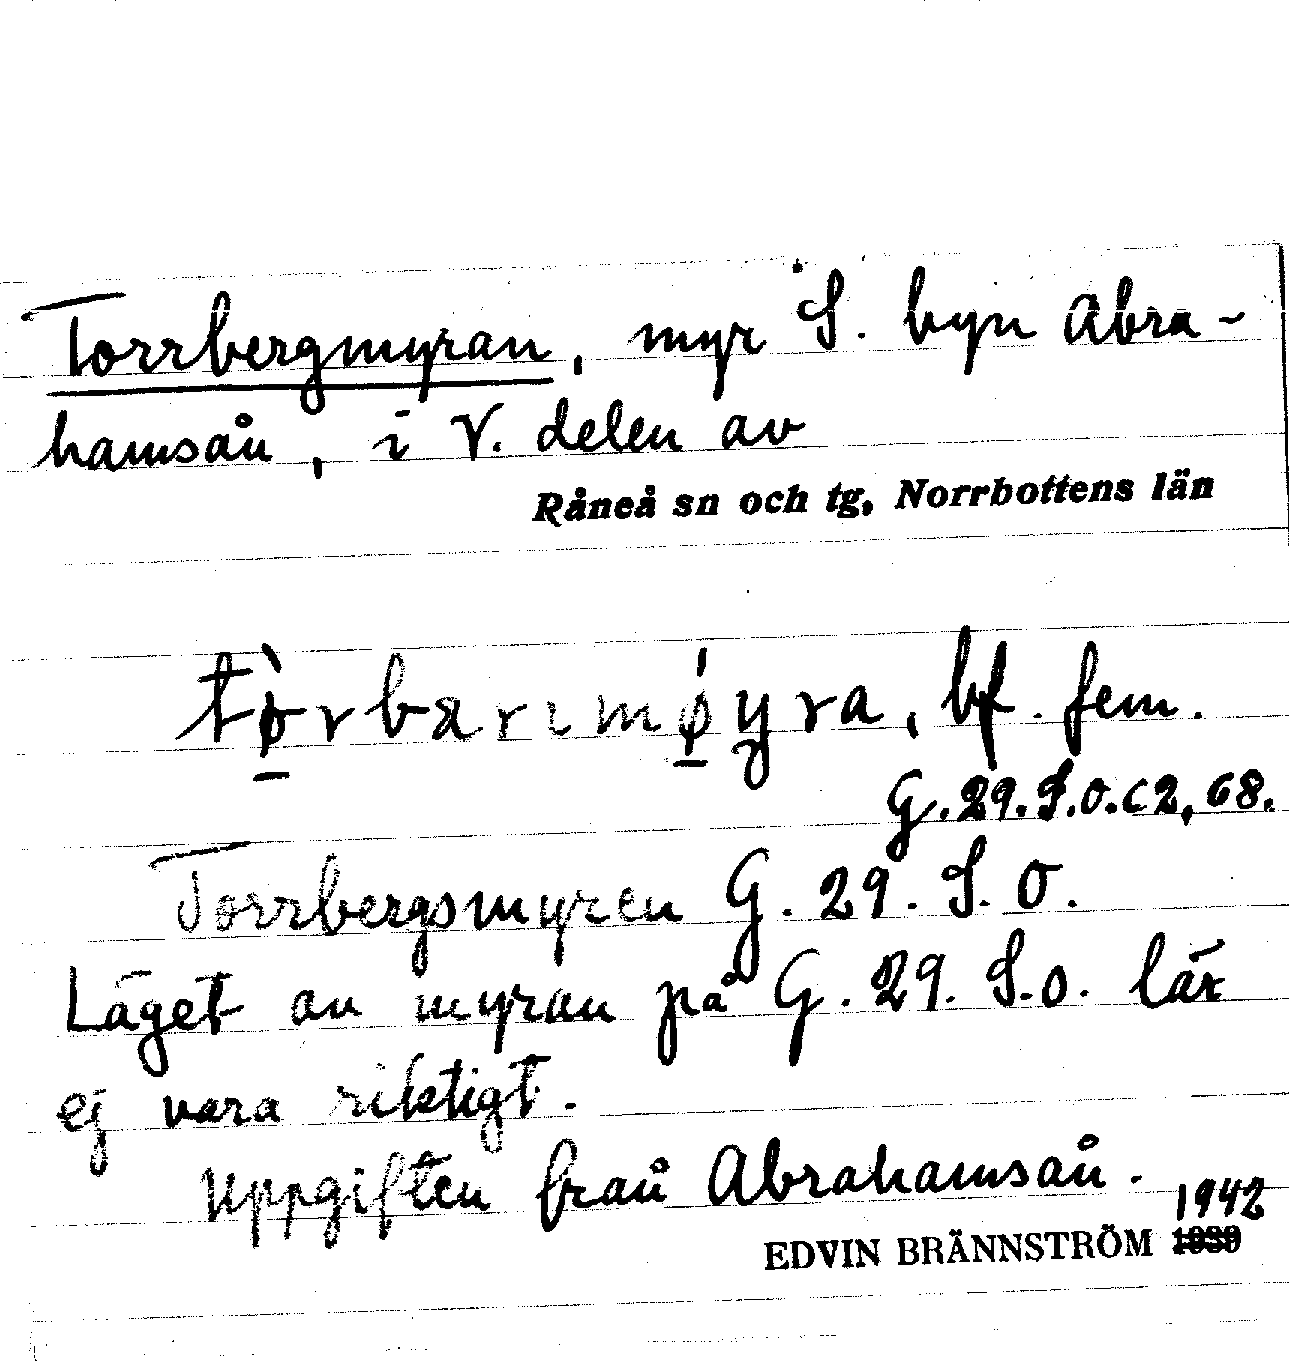 Torrbergmyran, myr S. byn Abra-
hamsån, i V. delen av
Råneå sn och tg, Norrbottens län
tø̀rbærımǿyra, bf. fem.
G.29.S.O.C2,68.
Torrbergsmyren G. 29. S. O.
Läget av myran på G. 29. S.O. lär
ej vara riktigt.
Uppgiften från Abrahamsån.
1942
EDVIN BRÄNNSTRÖM 1939